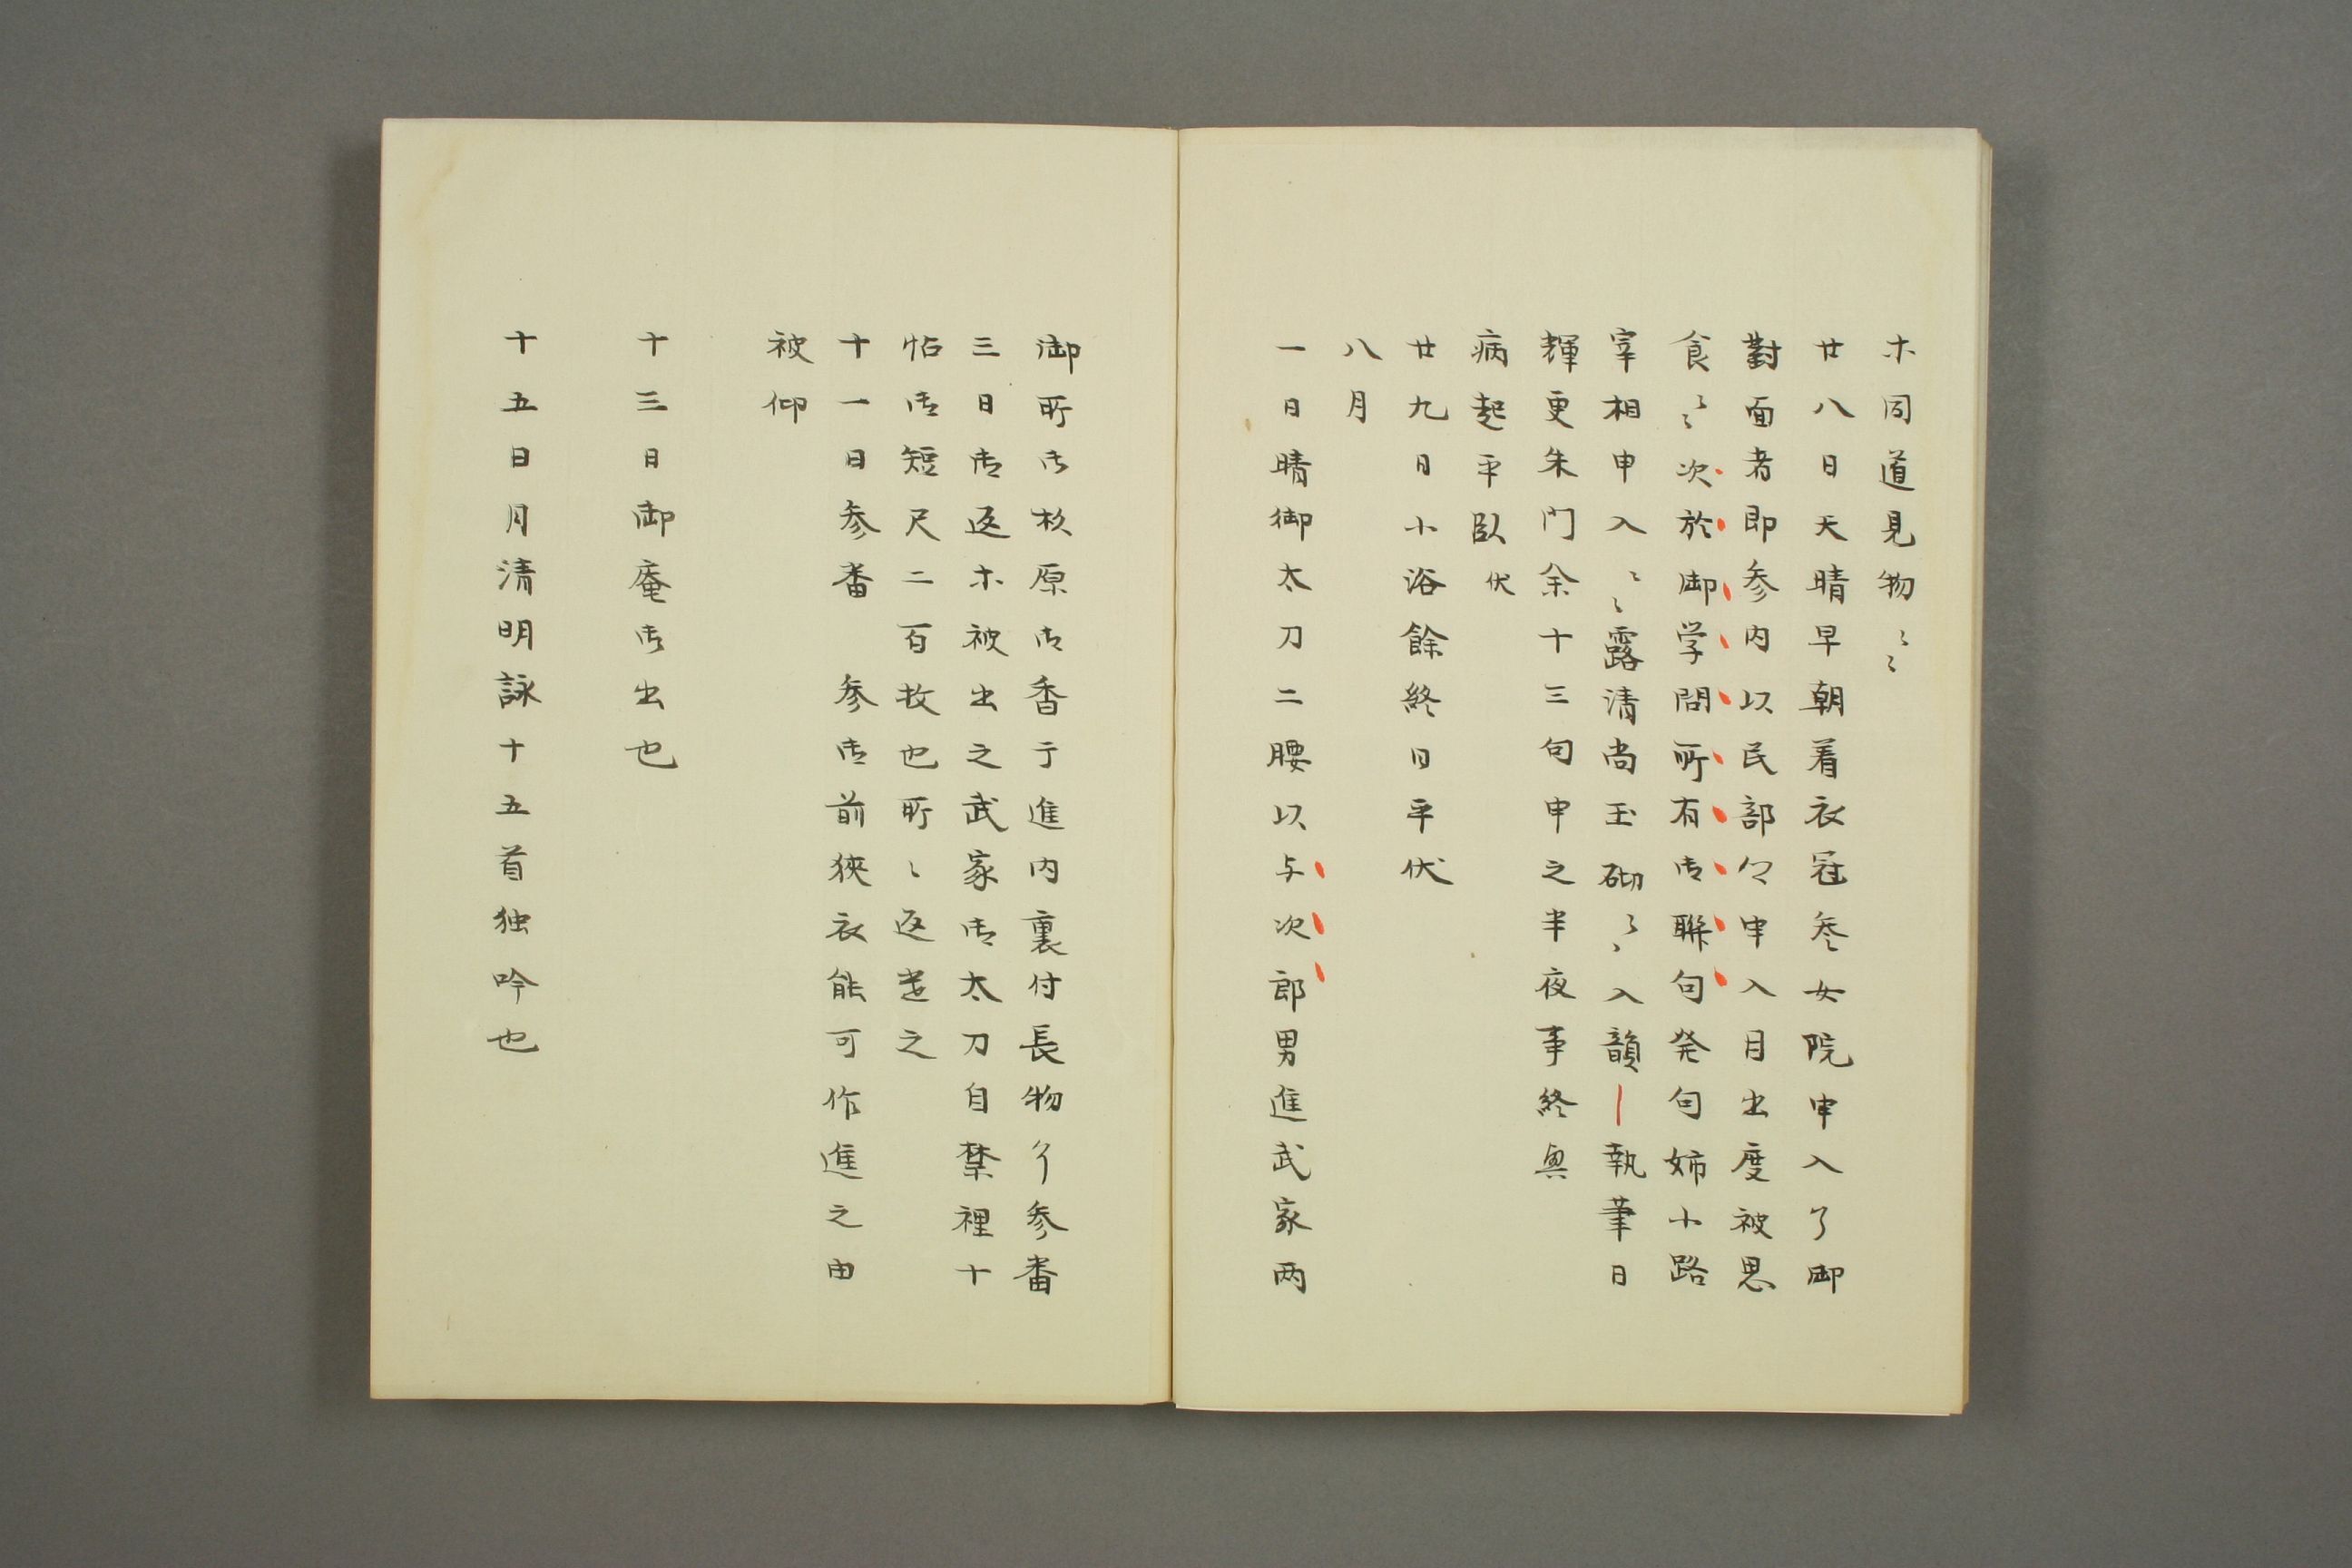 ホ同道見物〻〻
廿八日天晴早朝着衣冠参女院申入了御
對面者即参内以民部卿申入目出度被思
食〻〻次於御学問所有御聯句発句姉小路
宰相申入〻〻露清尚玉砌〻〻入韻｜執筆日
輝更朱門余十三句申之半夜事終興
病起平臥伏
廿九日小浴餘終日平伏
八月
一日晴御太刀二腰以与次郎男進武家両
御所御杉原御香于進内裏付長物了参番
三日御返ホ被出之武家御太刀自禁裡十
帖御短尺二百枚也所〻返遣之
十一日参番　参御前狭衣能可作進之由
被仰
十三日御庵御出也
十五日月清明詠十五首独吟也